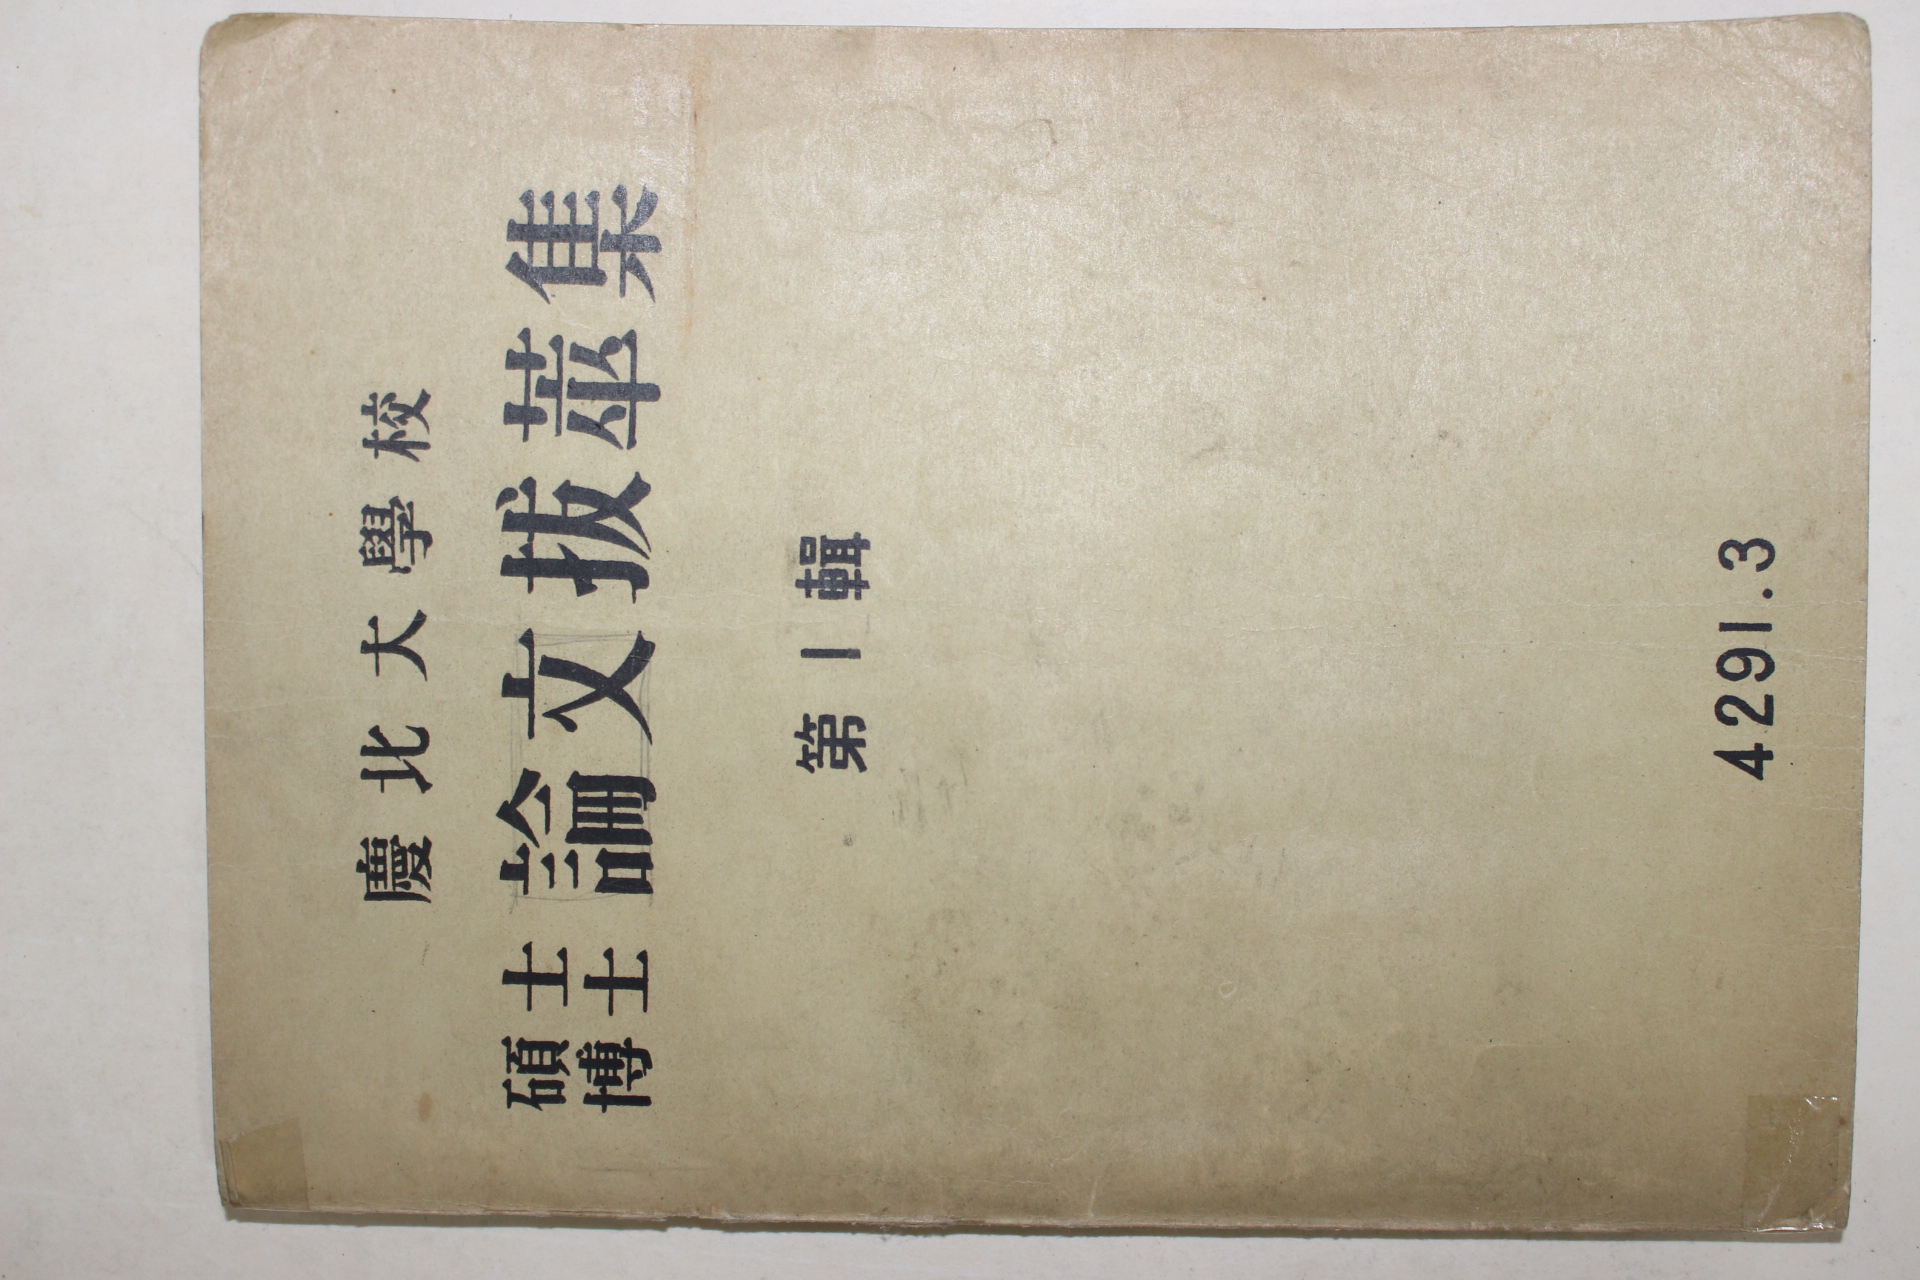 慶北大學校
碩士
博士
論文拔萃集
第1輯
4291.3